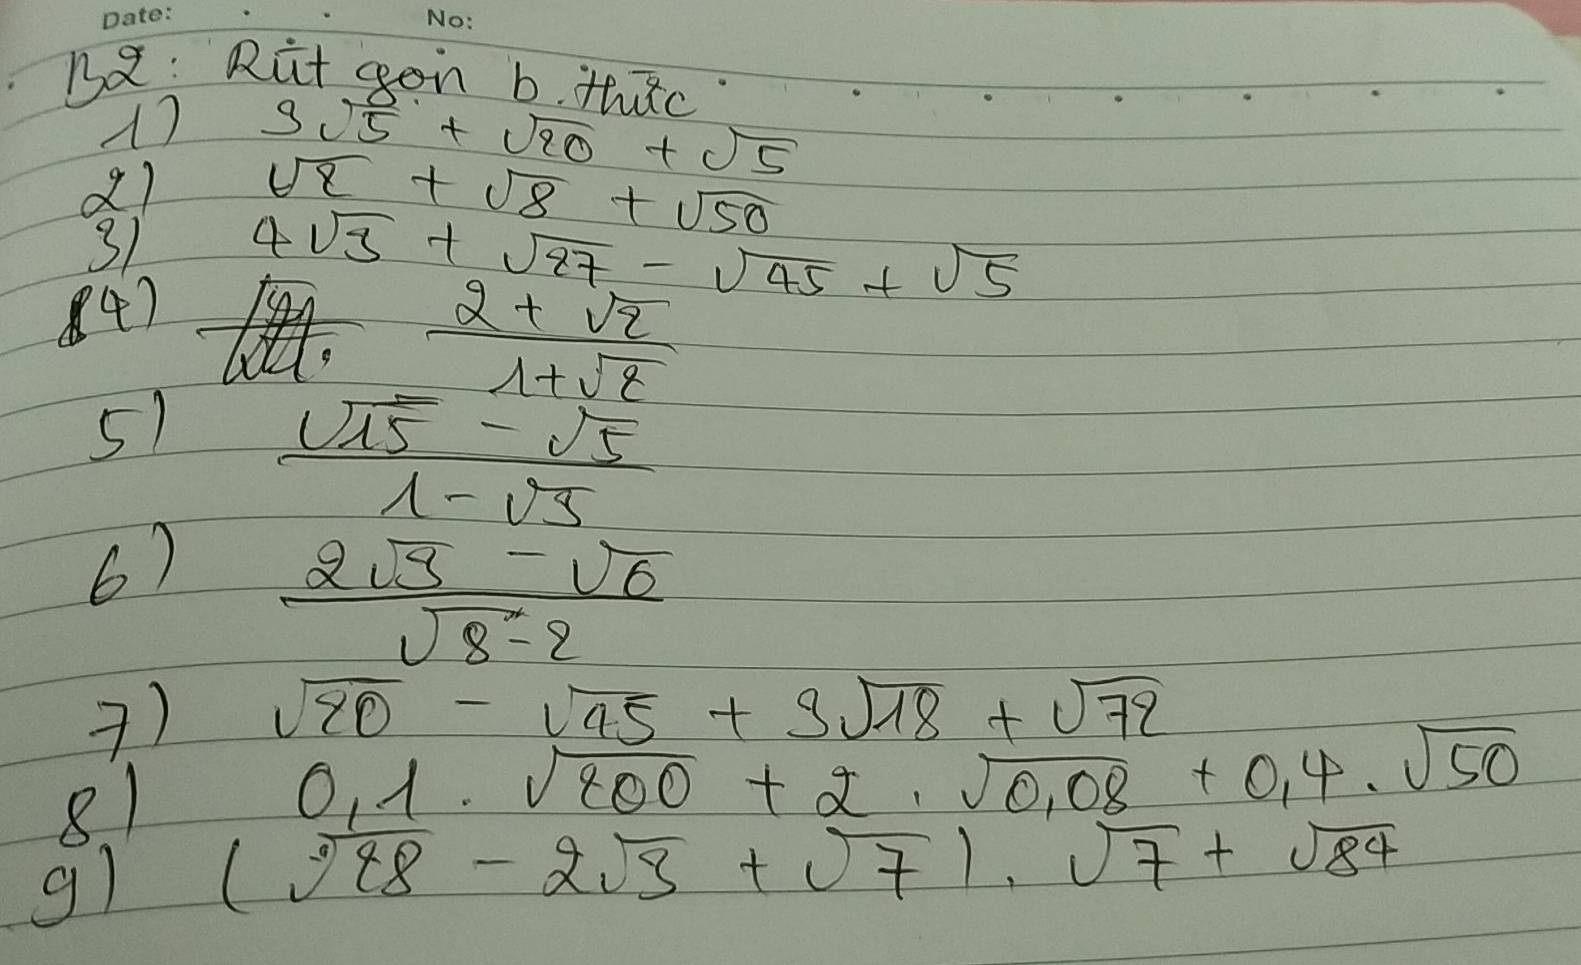 Date: No:
B2: Rút gọn b.thức
1) 3√5 + √20 + √5
2) √2 + √8 + √50
3) 4√3 + √27 - √45 + √5
4) (2 + √2)/(1+√2)
5) (√15 - √5)/(1-√3)
6) (2√3 - √6)/(√8-2)
7) √20 - √45 + 3√18 + √72
8) 0,1 . √200 + 2 . √0,08 + 0,4 . √50
9) (√28 - 2√3 + √7) . √7 + √84